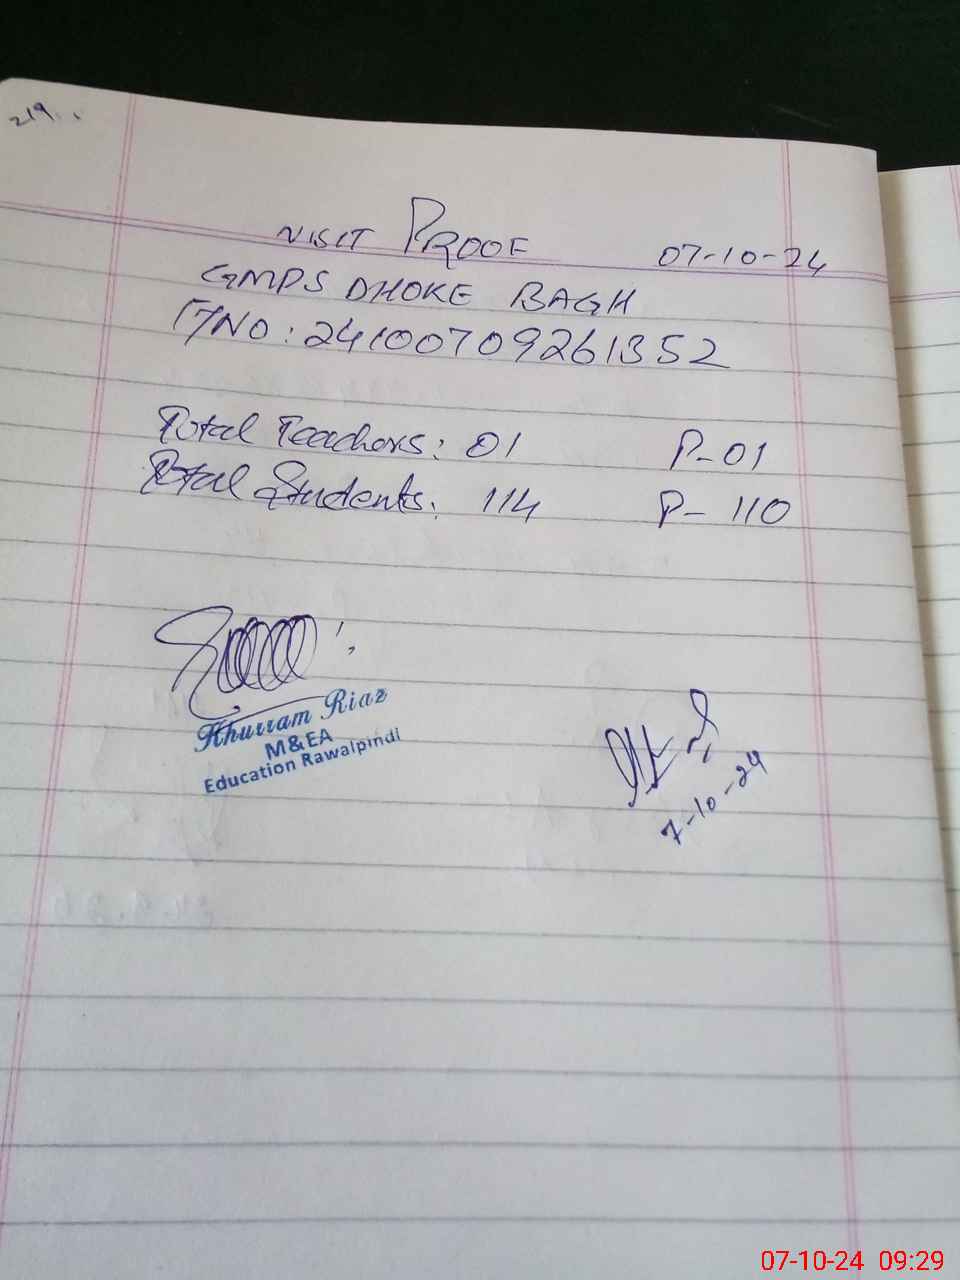 219..
VISIT PROOF 07-10-24
GMPS DHOKE BAGH
F/NO: 24100709261352
Total Teachers: 01 P-01
Total Students: 114 P- 110
Khurram Riaz
M&EA
Education Rawalpindi
7-10-24
07-10-24 09:29